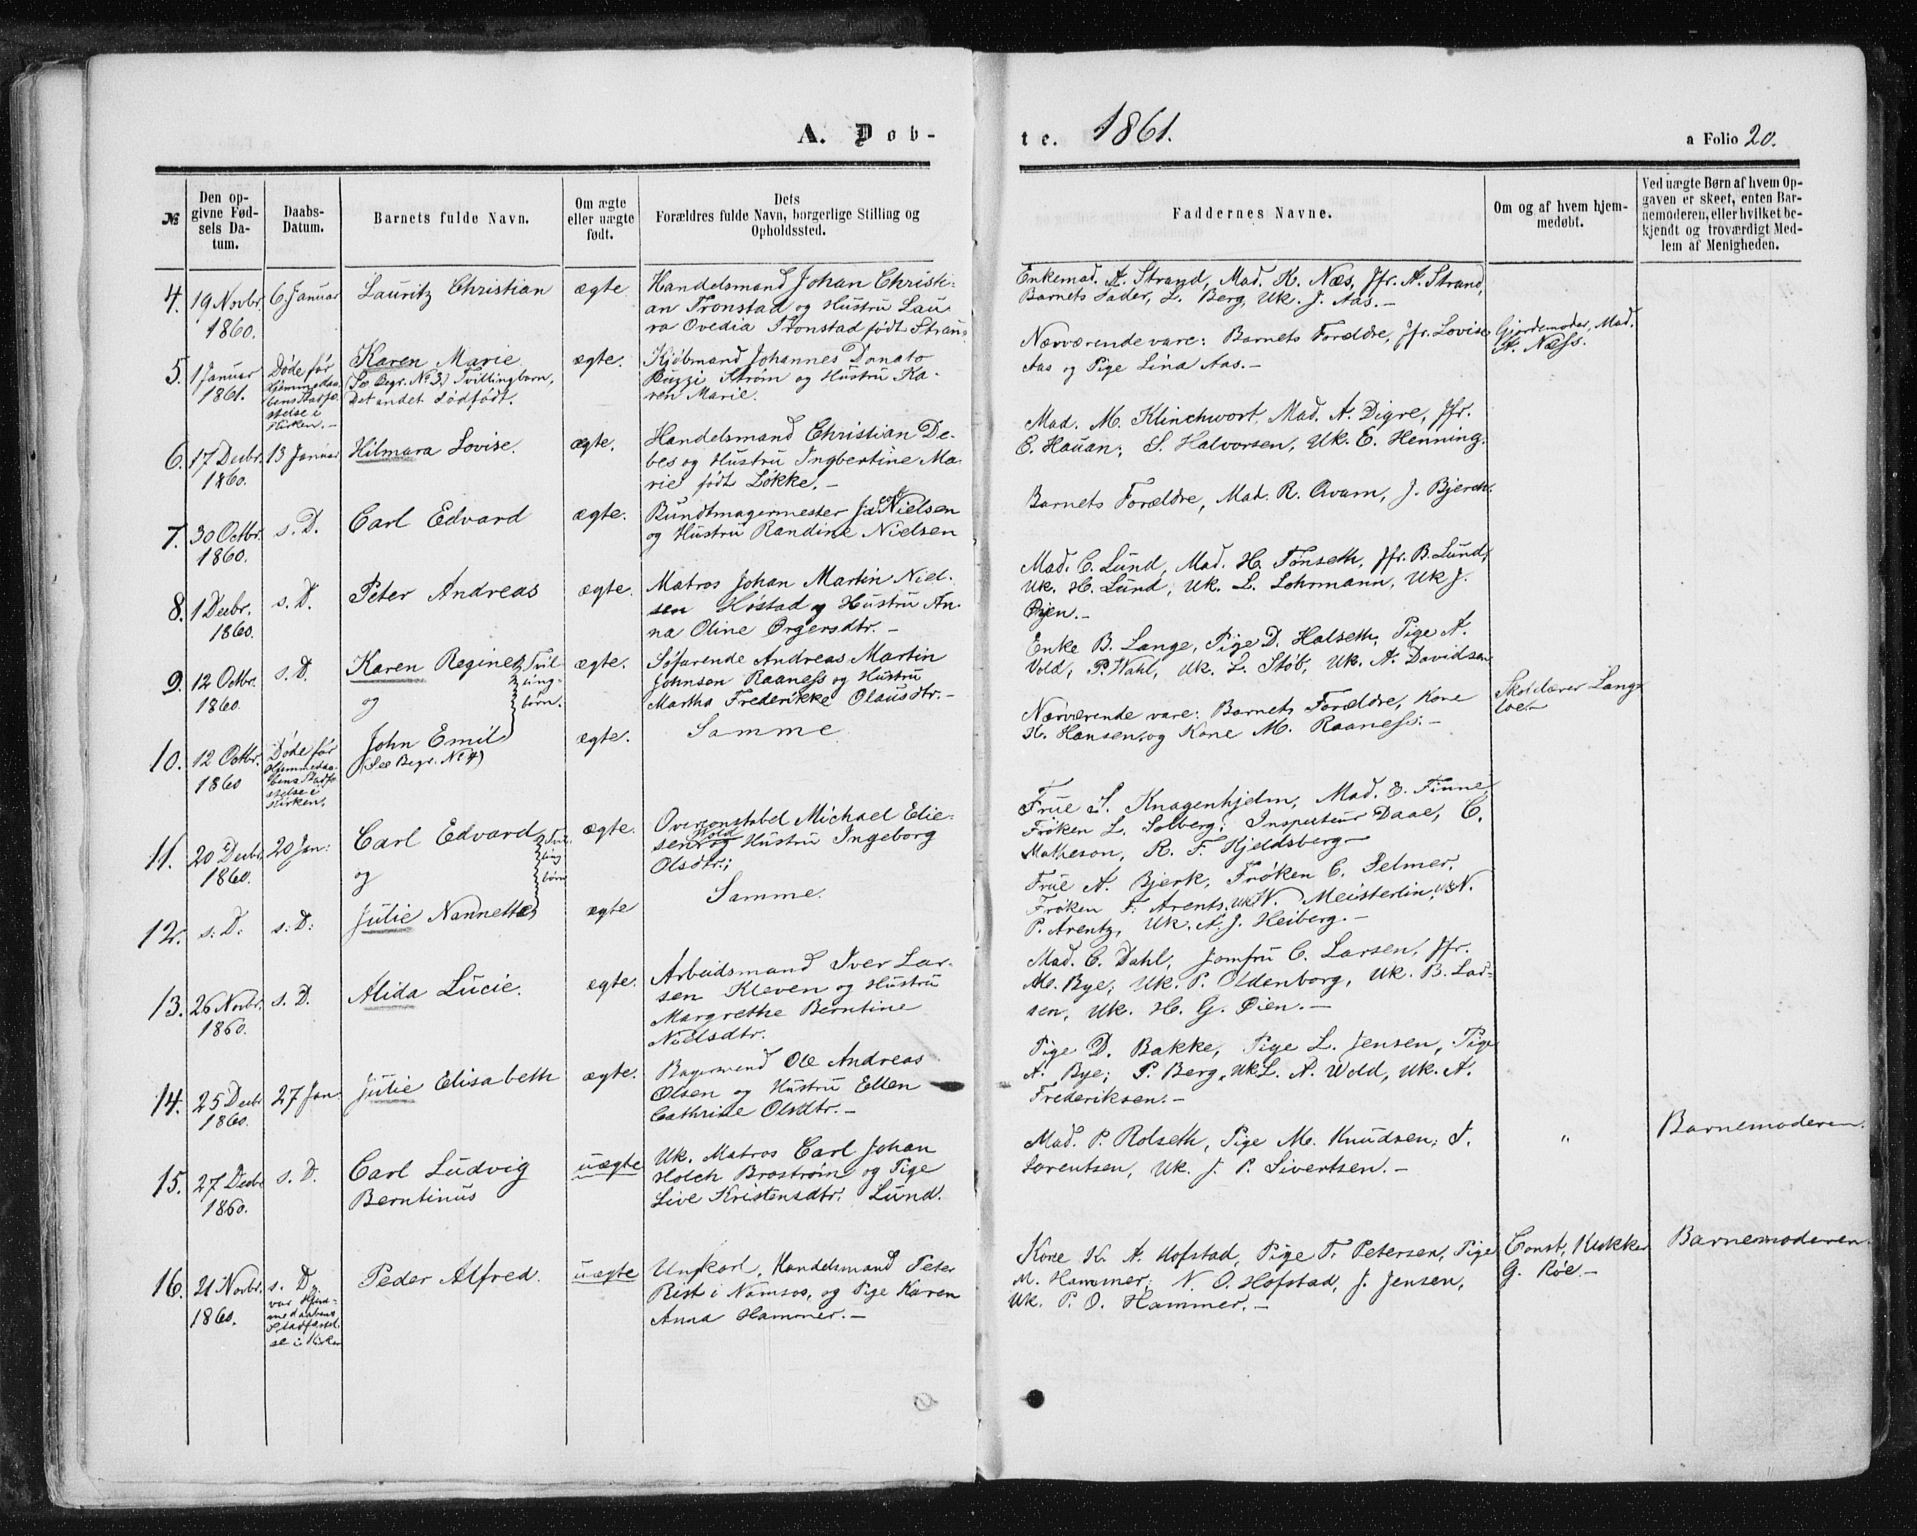 A. Dob-
te. 1861.
a Folio 20.
№
Den opgivne Fødsels Datum.
Daabs-Datum.
Barnets fulde Navn.
Om ægte eller uægte født.
Dets Forældres fulde Navn, borgerlige Stilling og Opholdssted.
Faddernes Navne.
Om og af hvem hjemmedøbt.
Ved uægte Børn af hvem Opgaven er skeet, enten Barnemoderen, eller hvilket bekjendt og troværdigt Medlem af Menigheden.
4. 19 Novbr. 1860. 6 Januar Lauritz Christian ægte
Handelsmand Johan Christi-
an Tronstad og Hustru Lau-
ra Ovedia Tronstad født Stran
Enkemad. A. Strand, Mad. K. Næs, Jfr. A. Strand,
Barnets Fader, L. Berg, Uk. J. Aas.-
5. 1 Januar 1861.
Døde før
Hjemmedaa-
bens Stadfæ-
stelse i
Kirken.-
Karen Marie
(Se Begr. No 3.) Tvillingbarn,
Det andet dødfødt.
ægte.
Kjøbmand Johannes Donato
Puzzi Strøm og Hustru Ka-
ren Marie.
Nærværende vare: Barnets Forældre, Jfr. Lovise
Aas og Pige Lina Aas.-
Gjordemoder, Mad.
A. Næss.
6. 17 Decbr. 1860. 13 Januar Hilmara Lovise. ægte.
Handelsmand Christian De-
bes og Hustru Ingbertine Ma-
rie født Løkke.-
Mad. M. Klinchwort, Mad. A. Digre, Jfr.
E. Hauan; S. Halvorsen, Uk. E. Henning.
7. 30 Octbr. 1860. s. D. Carl Edvard ægte.
Bundtmagermester Nielsen
og Hustru Randine Nielsen
Barnets Forældre, Mad. R. Qvam, J. Bjerch.
8. 1 Decbr. 1860. s. D. Peter Andreas ægte.
Matros Johan Martin Niel-
sen Høstad og Hustru An-
na Oline Ørgersdtr.-
Mad. C. Lund, Mad. H. Tønseth, Jfr. B. Lund,
Uk. H. Lund, Uk. L. Lohrmann, Uk J.
Øien.-
9. 12 Octbr. 1860 s. D. Karen Regine Tvil-
ling-
børn.
og
ægte.
Søfarende Andreas Martin
Johnsen Raaness og Hustru
Martha Frederikke Olausdtr.-
Enke B. Lange, Pige D. Halseth, Pige A.
Vold, P. Wahl, Uk. L. Støb, Uk. A. Davidsen
10. 12 Octbr. 1860
Døde før
Hjemmedaa-
bens Stadfæ-
stelse i
Kirken.
John Emil
(See Begr. No 4)
ægte.
Samme
Nærværende vare: Barnets Forældre, Kone
K. Hansen og Kone M. Raaness.-
Skolelærer Lang-
loe.
11. 20 Decbr. 1860. 20 Jan: Carl Edvard Tvil-
ling
børn
og
ægte.
Overconstabel Michael Elie-
sen Wold og Hustru Ingeborg
Olsdtr.;
Frue S. Knagenhjelm, Mad. E. Finne,
Frøken L. Solberg; Inspecteur Daae, C.
Matheson, R. F. Kjeldsberg-
12. s. D. s. D: Julie Nannette ægte
Samme.
Frue A. Bjerk, Frøken C. Selmer,
Frøken F. Arents, Uk W. Meisterlin, Uk N.
P. Arentz, Uk. A. J. Heiberg.-
13. 26 Novbr. 1860. s. D. Alida Lucie. ægte.
Arbeidsmand Iver Lar-
sen Kleven og Hustru
Margrethe Berntine
Nielsdtr.
Mad. C. Dahl, Jomfru C. Larsen, Jfr.
M. Bye; Uk. P. Oldenborg, Uk. B. Lar-
sen, Uk. H. G. Øien.-
14. 25 Decbr 1860. 27 Jan. Julie Elisabeth ægte.
Bagersvend Ole Andreas
Olsen og Hustru Ellen
Cathrine Olsdtr.-
Pige D. Bakke, Pige L. Jensen, Pige
A. Bye; P. Berg, Uk L. A. Wold, Uk. A.
Frederiksen.-
15. 27 Decbr 1860. s. D. Carl Ludvig
Berntinus
uægte
Uk. Matros Carl Johan
Holch Brostrøm og Pige
Live Kristensdtr. Lund.
Mad. P. Rolseth, Pige M. Knudsen; J.
Lorentsen, Uk. J. P. Sivertsen.-
"
Barnemoderen.
16. 21 Novbr. 1860.
s. D.
var Hjem-
medaabens
Stadfæstel-
se i Kirken
Peder Alfred. uægte
Ungkarl, Handelsmand Peter
Rist i Namsos, og Pige Karen
Anna Hammer.-
Kone K. A. Hofstad, Pige T. Petersen, Pige
M. Hammer; N. O. Hofstad, J. Jensen,
Uk. P. O. Hammer.-
Const. Klokker
G. Røe.-
Barnemoderen.